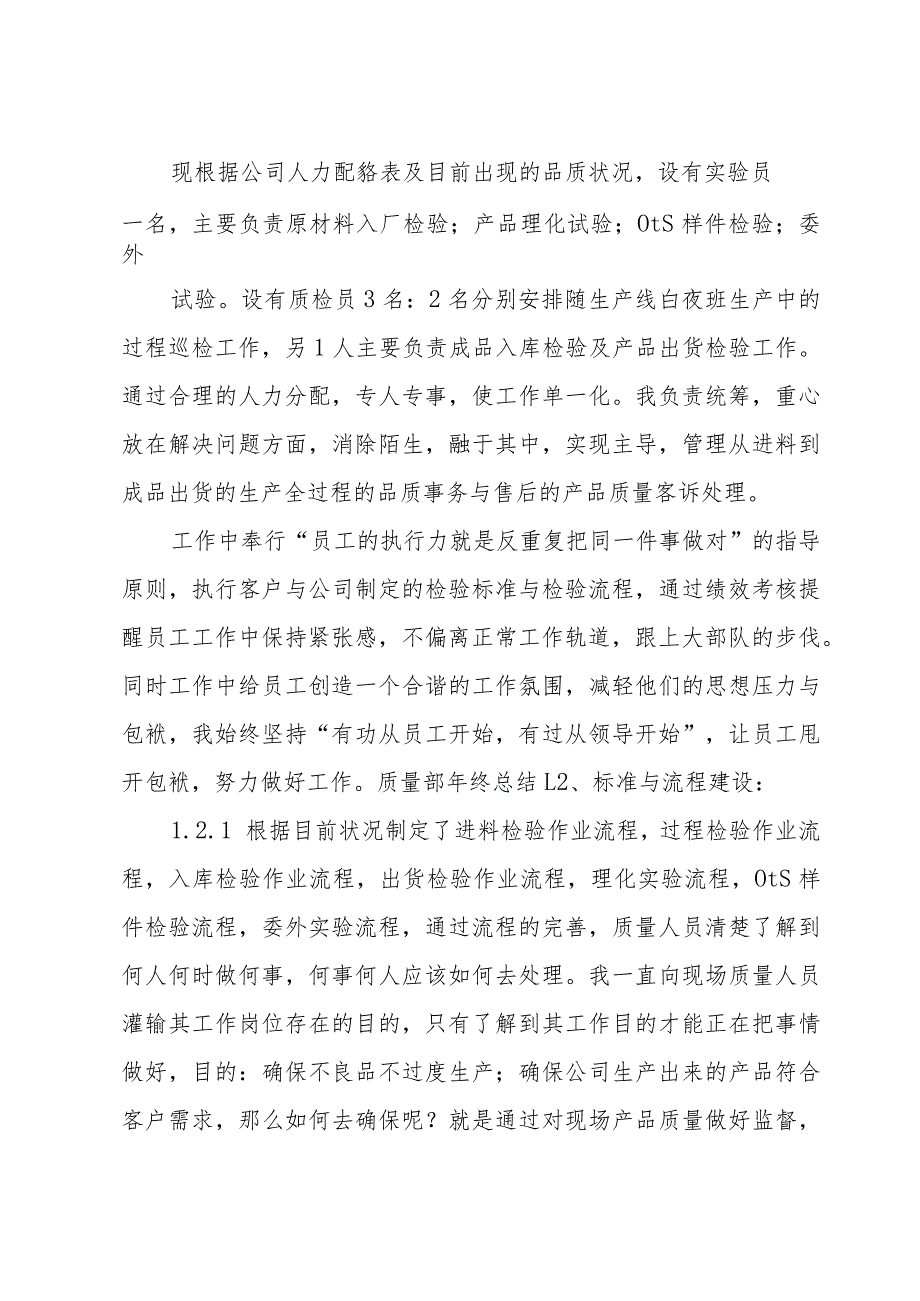 现根据公司人力配貉表及目前出现的品质状况，设有实验员
一名，主要负责原材料入厂检验；产品理化试验；OtS 样件检验；委
外
试验。设有质检员 3 名：2 名分别安排随生产线白夜班生产中的
过程巡检工作，另 1 人主要负责成品入库检验及产品出货检验工作。
通过合理的人力分配，专人专事，使工作单一化。我负责统筹，重心
放在解决问题方面，消除陌生，融于其中，实现主导，管理从进料到
成品出货的生产全过程的品质事务与售后的产品质量客诉处理。
工作中奉行“员工的执行力就是反重复把同一件事做对”的指导
原则，执行客户与公司制定的检验标准与检验流程，通过绩效考核提
醒员工工作中保持紧张感，不偏离正常工作轨道，跟上大部队的步伐。
同时工作中给员工创造一个合谐的工作氛围，减轻他们的思想压力与
包袱，我始终坚持“有功从员工开始，有过从领导开始”，让员工甩
开包袱，努力做好工作。质量部年终总结 L2、标准与流程建设：
1.2.1 根据目前状况制定了进料检验作业流程，过程检验作业流
程，入库检验作业流程，出货检验作业流程，理化实验流程，OtS 样
件检验流程，委外实验流程，通过流程的完善，质量人员清楚了解到
何人何时做何事，何事何人应该如何去处理。我一直向现场质量人员
灌输其工作岗位存在的目的，只有了解到其工作目的才能正在把事情
做好，目的：确保不良品不过度生产；确保公司生产出来的产品符合
客户需求，那么如何去确保呢？就是通过对现场产品质量做好监督，